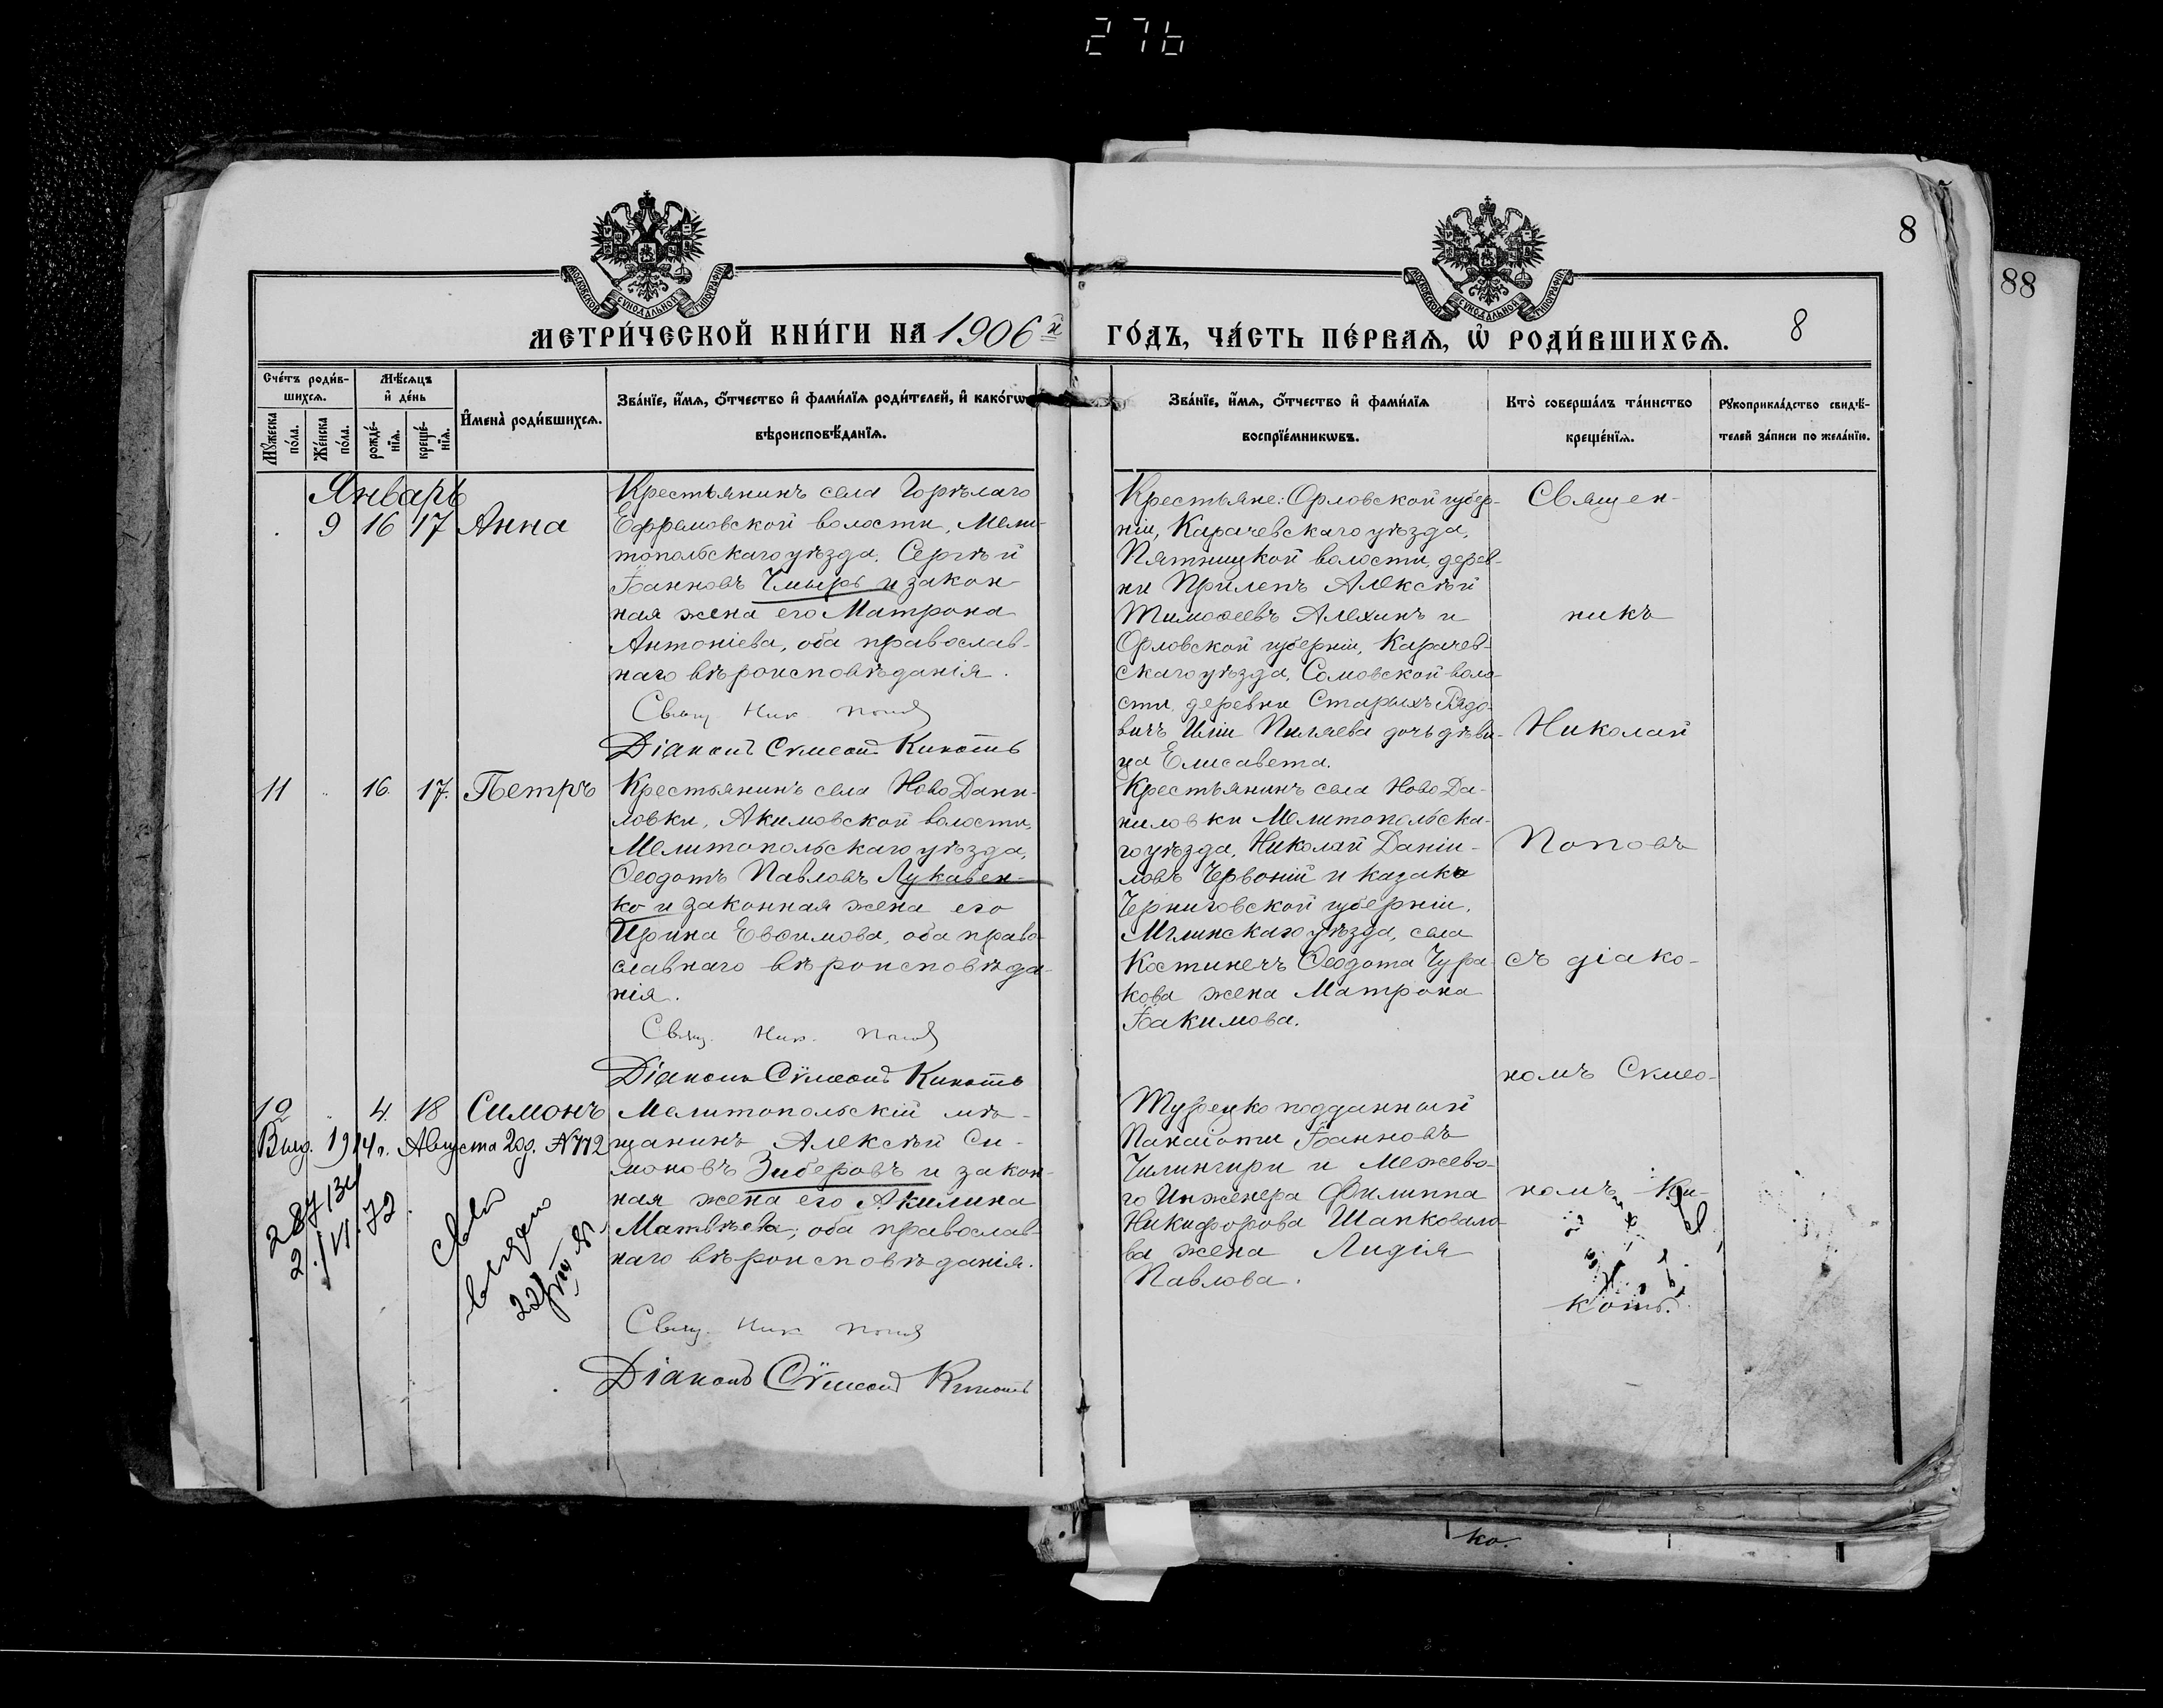 276
8
88
МОСКОВСКОЙ СѴНОДАЛЬНОЙ ТИПОГРАФІИ
МОСКОВСКОЙ СѴНОДАЛЬНОЙ ТИПОГРАФІИ
МЕТРИ́ЧЕСКОЙ КНИ́ГИ НА 1906 й
ГО́ДЪ, ЧА́СТЬ ПЕ́РВАѦ, Ѡ҆ РОДИ́ВШИХСѦ.
8
Сче́тъ роди́в-
шихсѧ.
Мꙋ́жеска
по́ла.
Же́нска
по́ла.
Мѣ́сѧцъ
и҆ де́нь
рожде́-
нїѧ.
креще́-
нїѧ.
И҆мена̀ роди́вшихсѧ.
Зва́нїе, и҆́мѧ, ѻ҆́тчество и҆ фами́лїѧ роди́телей, и҆ како́гѡ
вѣроисповѣ́данїѧ.
Зва́нїе, и҆́мѧ, ѻ҆́тчество и҆ фами́лїѧ
воспрїе́мникѡвъ.
Кто̀ соверша́лъ та́инство
креще́нїѧ.
Рꙋкоприкла́дство свидѣ́-
телей за́писи по жела́нїю.
Январь
9 16 17 Анна
Крестьянинъ села Горѣлаго
Ефремовской волости, Мели-
топольскаго уѣзда, Сергѣй
Іоанновъ Чмырь и закон-
ная жена его Матрона
Антоніева, оба православ-
наго вѣроисповѣданія.
Свящ. Ник. Попов
Діаконъ Сѵмеонъ Кикоть
Крестьяне: Орловской губер-
ніи, Карачевскаго уѣзда,
Пятницкой волости, дерев-
ни Прилепъ Алексѣй
Тимоѳеевъ Алехинъ и
Орловской губерніи, Карачев-
скаго уѣзда, Сомовской воло-
сти, деревни Старыхъ Рядо-
вичъ Иліи Пиляева дочь дѣви-
ца Елисавета.
Священ-
никъ
Николай
Поповъ
съ діако-
номъ Сѵмео-
номъ Ки-
коть.
11 16. 17. Петръ
Крестьянинъ села Ново Дани-
ловки, Акимовской волости,
Мелитопольскаго уѣзда,
Ѳеодотъ Павловъ Лукавен-
ко и законная жена его
Ирина Евѳимова, оба право-
славнаго вѣроисповѣда-
нія.
Свящ. Ник. Попов
Діаконъ Сѵмеонъ Кикоть
Крестьянинъ села Ново Да-
ниловки Мелитопольска-
го уѣзда, Николай Даніи-
ловъ Червоній и казака
Черниговской губерніи,
Мглинскаго уѣзда, села
Костиничъ Ѳеодота Чура-
кова жена Матрона
Іоакимова.
12 4. 18 Симонъ
Мелитопольскій мѣ-
щанинъ Алексѣй Си-
моновъ Зиберовъ и закон-
ная жена его Акилина
Матвѣева, оба православ-
наго вѣроисповѣданія.
Свящ. Ник. Попов
Діаконъ Сѵмеонъ Кикоть
Выд. 1914 г. Августа 20 д. № 772
2./VI.72
выдано
Турецко подданный
Панаіоти Іоанновъ
Чилингири и Межево-
го Инженера Филиппа
Никифорова Шаповало-
ва жена Лидія
Павлова.
ко.